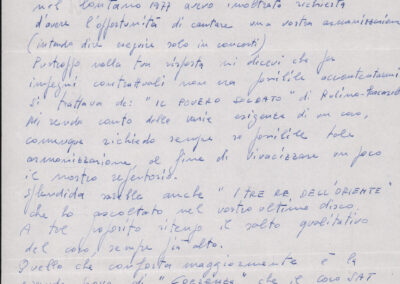 nel lontano 1977 avevo inoltrato richiesta
d'avere l'opportunità di cantare una vostra armonizzazione
(intendo dire eseguire solo in concerti)
Purtroppo nella tua risposta mi dicevi che per
impegni contrattuali non era possibile accontentarmi
Si trattava de: "IL POVERO SOLDATO" di
Mi rendo conto delle varie esigenze di un coro,
comunque richiedo sempre se possibile tale
armonizzazione, al fine di vivacizzare un poco
il nostro repertorio.
Splendida sarebbe anche "I TRE RE DELL'ORIENTE"
che ho ascoltato nel vostro ultimo disco.
A tal proposito ritengo il salto qualitativo
del coro, sempre più alto.
Quello che conforta maggiormente è la
che il coro SAT